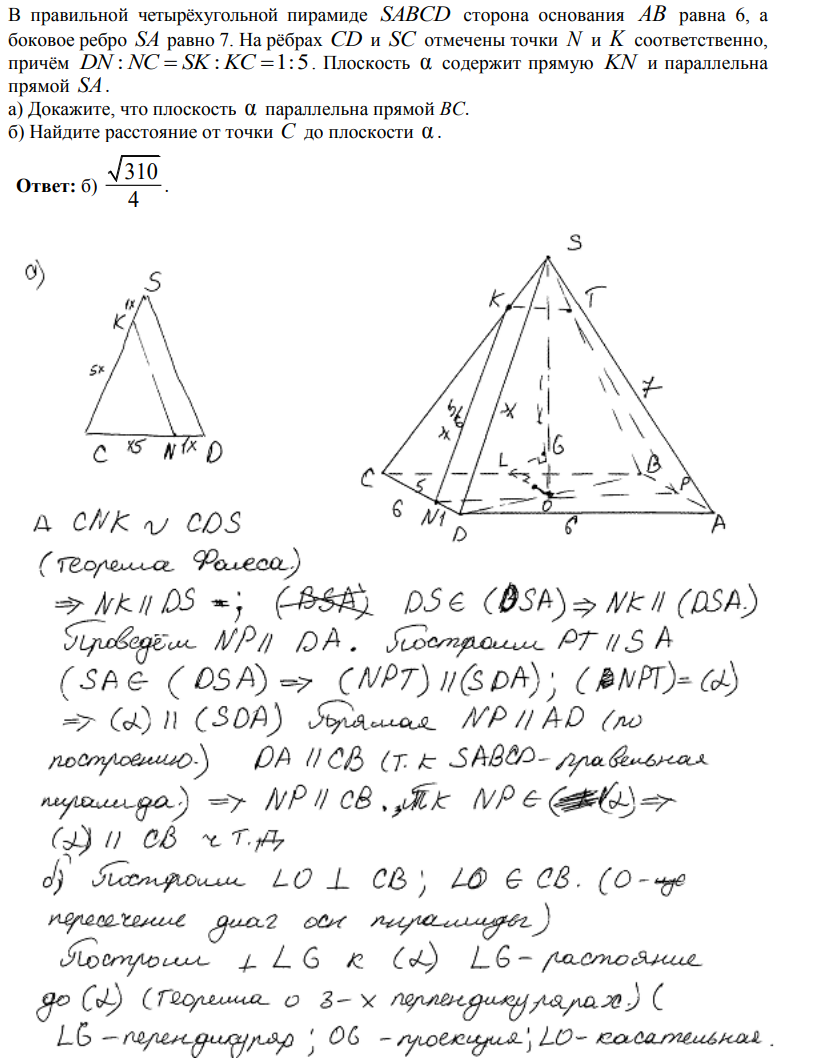 В правильной четырёхугольной пирамиде SABCD сторона основания AB равна 6, а
боковое ребро SA равно 7. На рёбрах CD и SC отмечены точки N и K соответственно,
причём DN : NC = SK : KC = 1 : 5. Плоскость α содержит прямую KN и параллельна
прямой SA.
а) Докажите, что плоскость α параллельна прямой BC.
б) Найдите расстояние от точки C до плоскости α.
Ответ: б) √310/4.
а)
S
1x
K
5x
C x5 N 1x D
S
K T
7
5/6
x x
G
L
C B
5 P
6 N 1 O
D 6 A
Δ CNK ∾ CDS
(теорема Фалеса.)
⇒ NK // DS ; (BSA) DS ∈ (DSA) ⇒ NK // (DSA.)
Проведём NP // DA. Построим PT // SA
(SA ∈ (DSA) ⇒ (NPT) // (SDA) ; (NPT) = (α)
⇒ (α) // (SDA) Прямая NP // AD (по
построению.) DA // CB (т.к SABCD - правельная
пирамида.) ⇒ NP // CB. , Тк NP ∈ (α) ⇒
(α) // CB ч т.д
б) Построим LO ⊥ CB ; LO ∈ CB. (O -
пересечение диаг осн пирамиды)
Построим ⊥ LG к (α) LG - растояние
до (α) (теорема о 3-х перпендикулярах.) (
LG - перендикуляр ; OG - проекция ; LO - касательная.